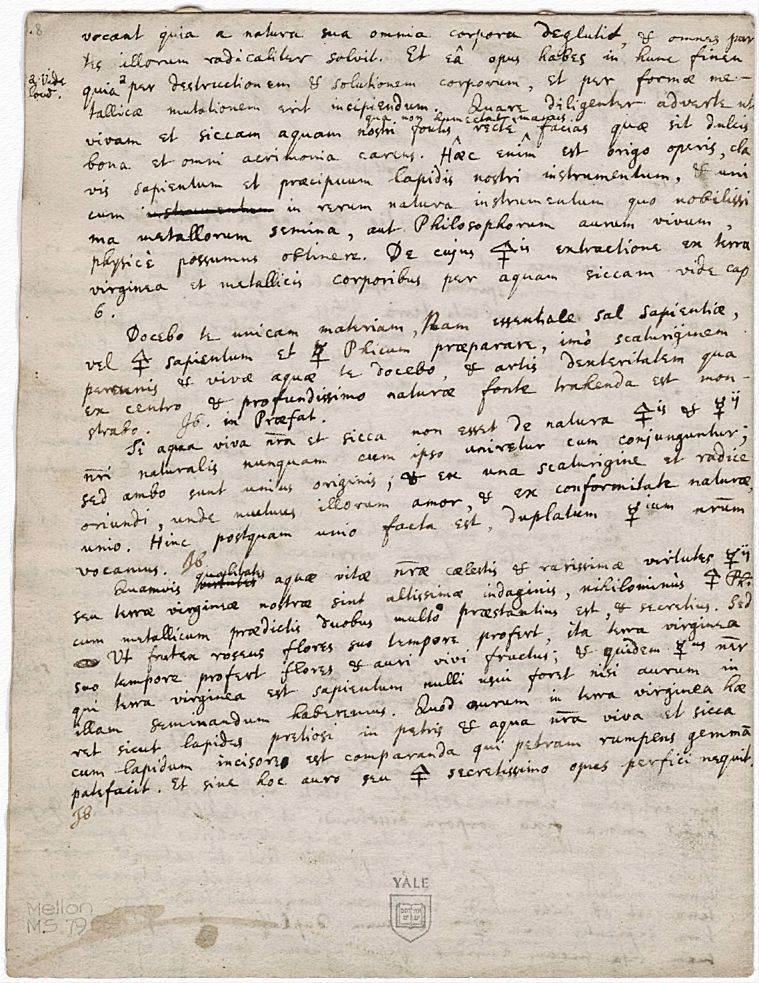 .8
vocant quia a natura sua omnia corpora deglutit, & omnes par
tes illorum radicaliter solvit. Et eâ opus habes in hunc finem
a. Vide
quia ᵃ per destructionem & solutionem corporum, et per formæ me-
tallicæ mutationem erit incipiendum. Quare diligenter adverte ut
qua non humectat manus.
vivam et siccam aquam nostri fontis recte ^ facias quæ sit dulcis
bona et omni acrimonia carens. Hæc enim est origo operis, cla
vis sapientum et præcipuum lapidis nostri instrumentum, & uni
cum instrumentum in rerum natura instrumentum quo nobilissi
ma metallorum semina, aut Philosophorum aurum vivum,
physicè possumus obtinere. De cujus 🜍is extractione ex terra
virginea et metallicis corporibus per aquam siccam vide cap
6.
Docebo te unicam materiam, Nam essentiale sal sapientiæ,
vel 🜍 sapientum et ☿ Phicum præparare, imò scaturiginem
perennis & vivæ aquæ te docebo, & artis dexteritatem qua
ex centro & profundissimo naturæ fonte trahenda est mon-
strabo. Ib. in Præfat.
Si aqua viva nr̄a et sicca non esset de natura 🜍is & ☿ij
nr̄i naturalis nunquam cum ipso uniretur cum conjunguntur;
sed ambo sunt unius originis; & ex una scaturigine et radice
oriundi, unde mutuus illorum amor, & ex conformitate naturæ,
unio. Hinc postquam unio facta est, duplatum ☿ium nr̄um
vocamus. Ib.
qualitates
Quamvis virtutes aquæ vitæ nr̄æ cælestis & rarissimæ virtutes ☿ij
seu terræ virgineæ nostræ sint altissimæ indaginis, nihilominùs 🜍 Ph.
cum metallicum prædictis duobus multò præstantius est, & secretius. Sed
Ut frutex roseus flores suo tempore profert, ita terra virginea
suo tempore profert flores & auri vivi fructus; & quidem ☿us nēr
qui terra virginea est sapientum nulli usui foret nisi aurum in
illam seminandum haberemus. Quòd aurum in terra virginea hæ
ret sicut lapides pretiosi in petris & aqua nr̄a viva et sicca
cum lapidum incisore est comparanda qui petram rumpens gemmā
patefacit. Et sine hoc auro seu 🜍 secretissimo opus perfici nequit.
Ib.
YALE
Mellon
MS. 79